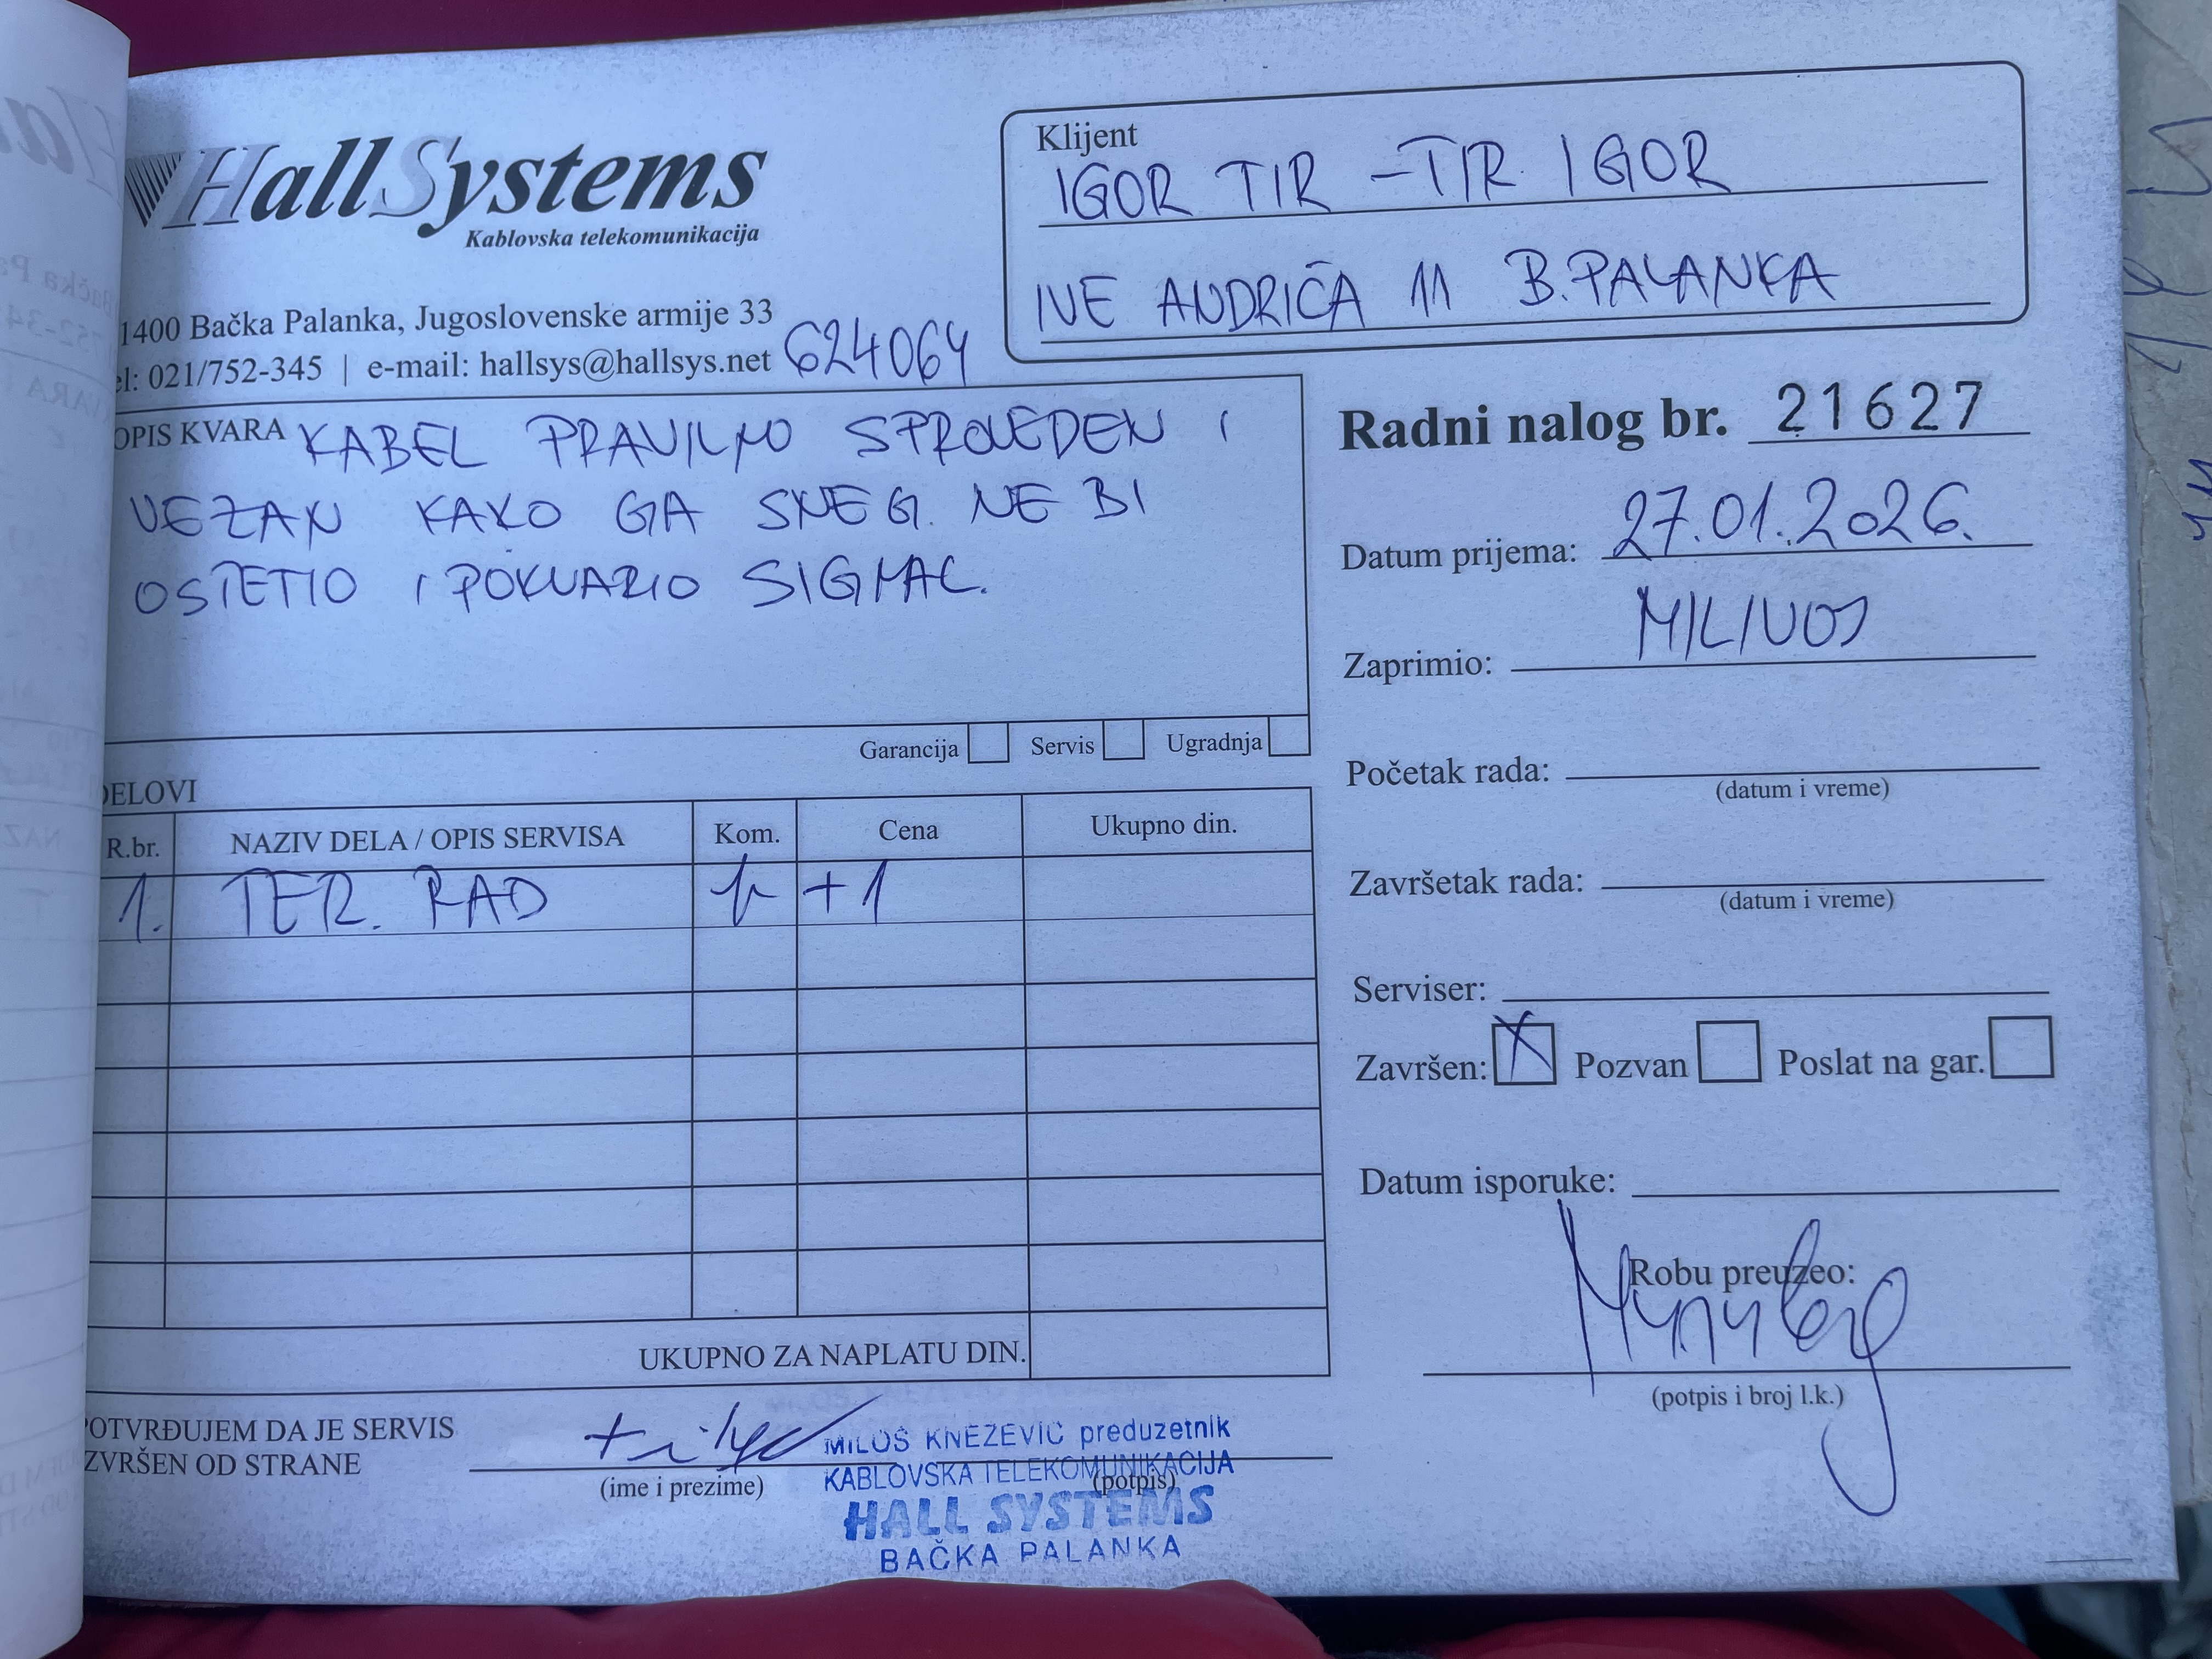 HallSystems
Kablovska telekomunikacija
1400 Bačka Palanka, Jugoslovenske armije 33
el: 021/752-345 | e-mail: hallsys@hallsys.net
624064
Klijent
IGOR TIR - TIR IGOR
IVE ANDRIĆA 11 B.PALANKA
OPIS KVARA KABEL PRAVILNO SPROVEDEN I
VEZAN KAKO GA SNEG NE BI
OSTETIO I POKVARIO SIGNAL.
Garancija Servis Ugradnja
Radni nalog br. 21627
Datum prijema: 27.01.2026.
Zaprimio: MILIVOJ
Početak rada:
(datum i vreme)
Završetak rada:
(datum i vreme)
Serviser:
Završen: X Pozvan Poslat na gar.
Datum isporuke:
Robu preuzeo:
(potpis i broj l.k.)
DELOVI
R.br. NAZIV DELA / OPIS SERVISA Kom. Cena Ukupno din.
1. TER. RAD +1
UKUPNO ZA NAPLATU DIN.
POTVRĐUJEM DA JE SERVIS
IZVRŠEN OD STRANE
(ime i prezime) (potpis)
MILOŠ KNEŽEVIĆ preduzetnik
KABLOVSKA TELEKOMUNIKACIJA
HALL SYSTEMS
BAČKA PALANKA